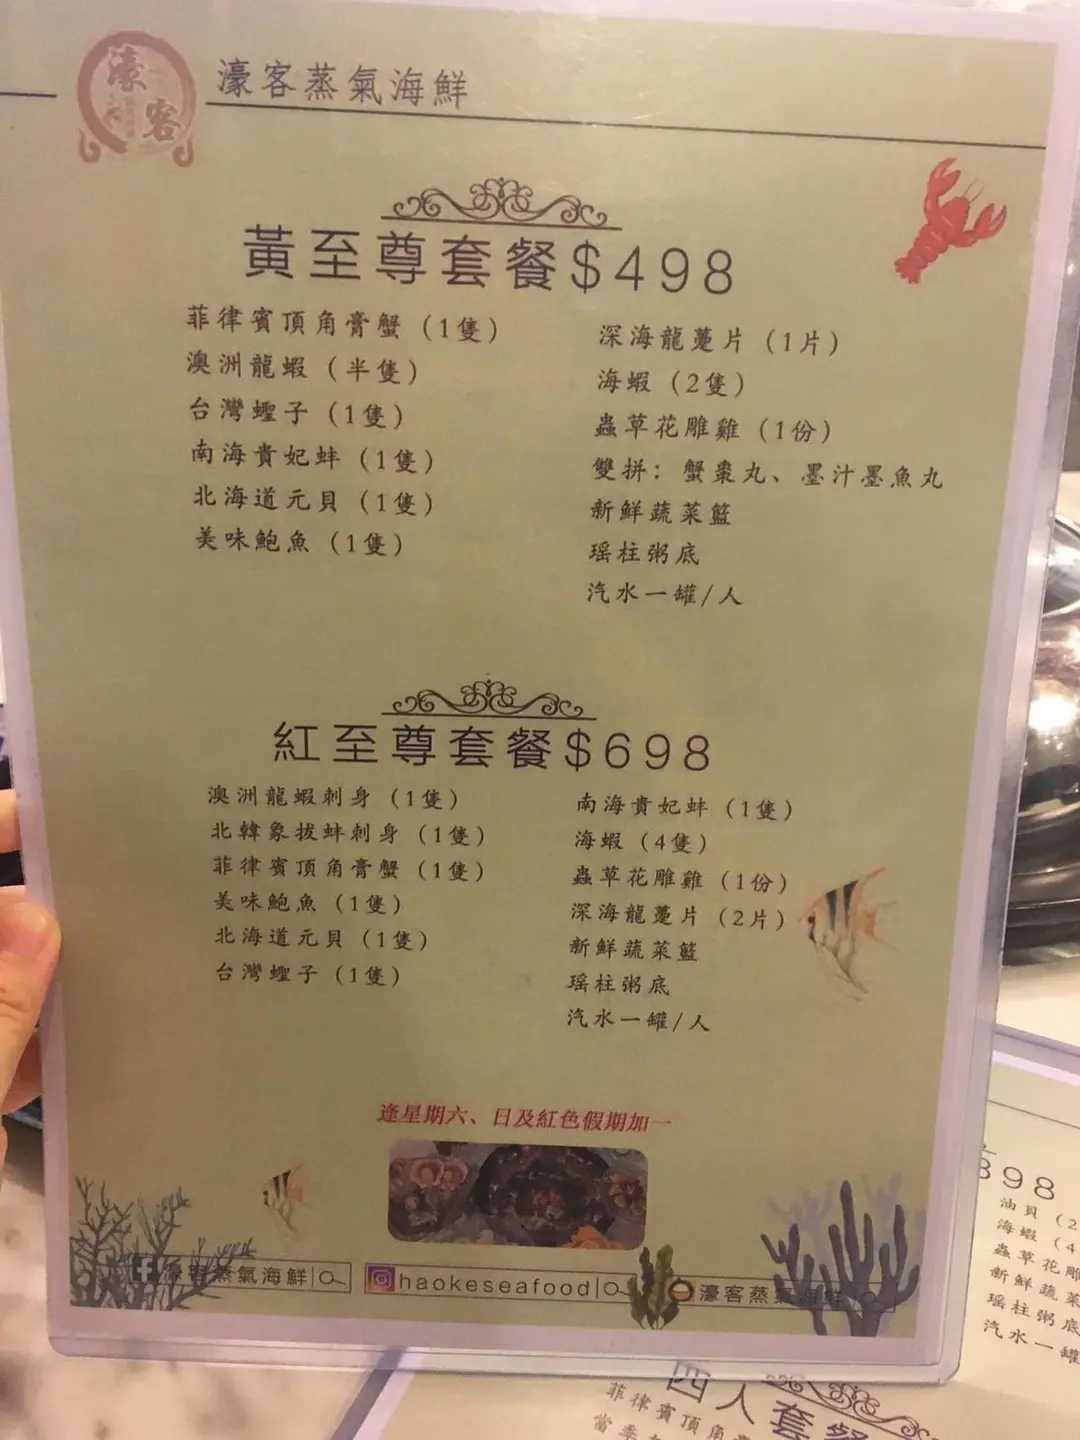 濠客
濠客蒸氣海鮮
黃至尊套餐$498
菲律賓頂角膏蟹（1隻）
澳洲龍蝦（半隻）
台灣蟶子（1隻）
南海貴妃蚌（1隻）
北海道元貝（1隻）
美味鮑魚（1隻）
深海龍躉片（1片）
海蝦（2隻）
蟲草花雕雞（1份）
雙拼：蟹棗丸、墨汁墨魚丸
新鮮蔬菜籃
瑶柱粥底
汽水一罐/人
紅至尊套餐$698
澳洲龍蝦刺身（1隻）
北韓象拔蚌刺身（1隻）
菲律賓頂角膏蟹（1隻）
美味鮑魚（1隻）
北海道元貝（1隻）
台灣蟶子（1隻）
南海貴妃蚌（1隻）
海蝦（4隻）
蟲草花雕雞（1份）
深海龍躉片（2片）
新鮮蔬菜籃
瑶柱粥底
汽水一罐/人
逢星期六、日及紅色假期加一
濠客蒸氣海鮮
haokeseafood
濠客蒸氣海鮮
398
油貝（2
海蝦（4
蟲草花雕
新鮮蔬菜
瑶柱粥底
汽水一罐
四人套餐
菲律賓頂角膏